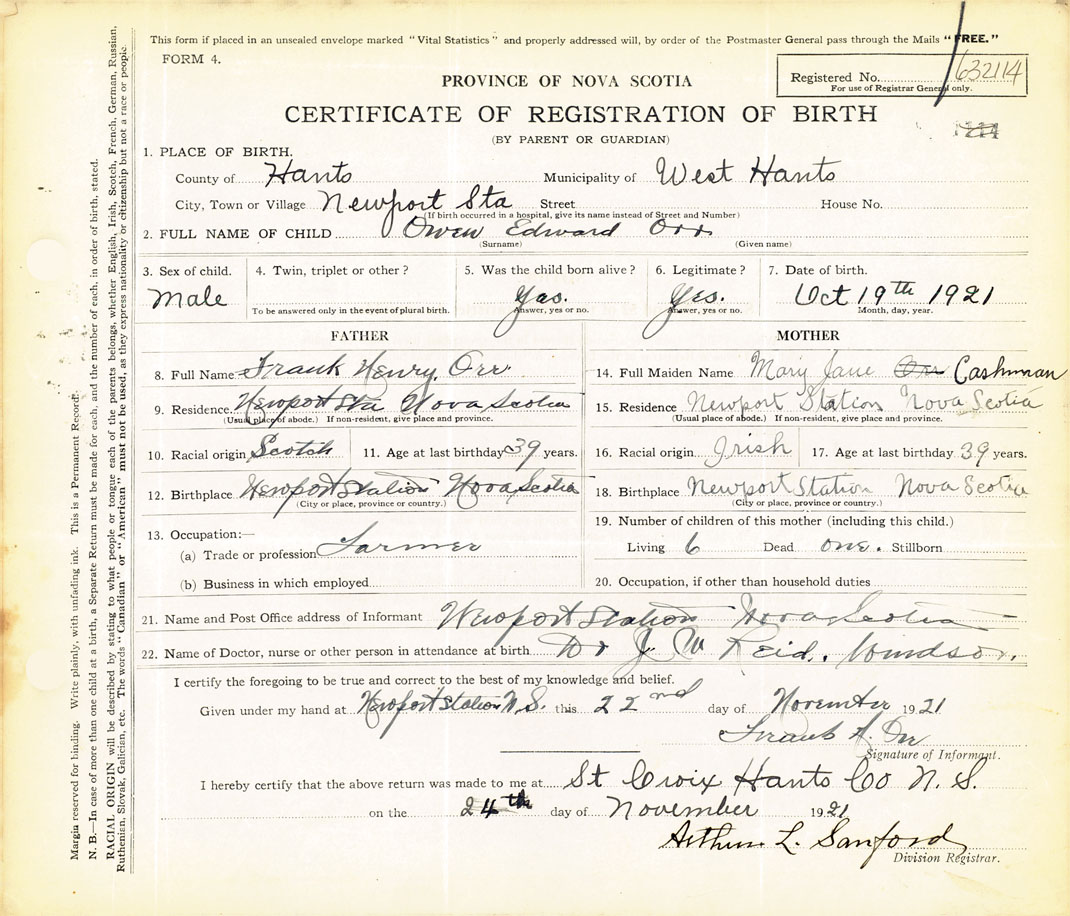 This form if placed in an unsealed envelope marked "Vital Statistics" and properly addressed will, by order of the Postmaster General pass through the Mails "FREE."
FORM 4.
PROVINCE OF NOVA SCOTIA
Registered No. 632114
For use of Registrar General only.
CERTIFICATE OF REGISTRATION OF BIRTH
(BY PARENT OR GUARDIAN)
1. PLACE OF BIRTH.
County of Hants Municipality of West Hants
City, Town or Village Newport Sta Street House No.
(If birth occurred in a hospital, give its name instead of Street and Number)
2. FULL NAME OF CHILD Owen Edward Orr
(Surname) (Given name)
3. Sex of child. 4. Twin, triplet or other? 5. Was the child born alive? 6. Legitimate? 7. Date of birth.
Male Yes. Yes. Oct 19th 1921
To be answered only in the event of plural birth. Answer, yes or no. Answer, yes or no. Month, day, year.
FATHER MOTHER
8. Full Name Frank Henry Orr 14. Full Maiden Name Mary Jane Orr Cashman
9. Residence. Newport Sta Nova Scotia 15. Residence Newport Station Nova Scotia
(Usual place of abode.) If non-resident, give place and province. (Usual place of abode.) If non-resident, give place and province.
10. Racial origin Scotch 11. Age at last birthday 39 years. 16. Racial origin Irish 17. Age at last birthday 39 years.
12. Birthplace Newport Station Nova Scotia 18. Birthplace Newport Station Nova Scotia
(City or place, province or country.) (City or place, province or country.)
13. Occupation:— 19. Number of children of this mother (including this child.)
(a) Trade or profession Farmer Living 6 Dead one. Stillborn
(b) Business in which employed 20. Occupation, if other than household duties
21. Name and Post Office address of Informant Newport Station Nova Scotia
22. Name of Doctor, nurse or other person in attendance at birth Dr J. W Reid. Windsor.
I certify the foregoing to be true and correct to the best of my knowledge and belief.
Given under my hand at Newport Station N.S. this 22nd day of November 1921
Frank H. Orr
Signature of Informant.
I hereby certify that the above return was made to me at St Croix Hants Co N. S.
on the 24th day of November 1921
Arthur L. Sanford
Division Registrar.
Margin reserved for binding. Write plainly, with unfading ink. This is a Permanent Record.
N. B.—In case of more than one child at a birth, a Separate Return must be made for each, and the number of each, in order of birth, stated.
RACIAL ORIGIN will be described by stating to what people or tongue each of the parents belongs, whether English, Irish, Scotch, French, German, Russian,
Ruthenian, Slovak, Galician, etc. The words "Canadian" or "American" must not be used, as they express nationality or citizenship but not a race or people.